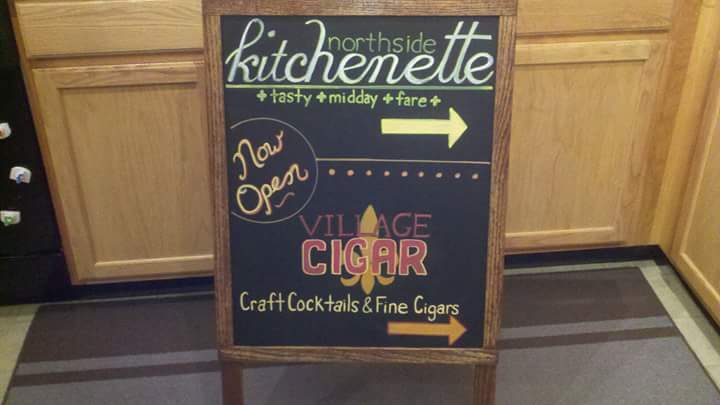 northside
kitchenette
tasty midday fare
Now
Open
VILLAGE
CIGAR
Craft Cocktails & Fine Cigars